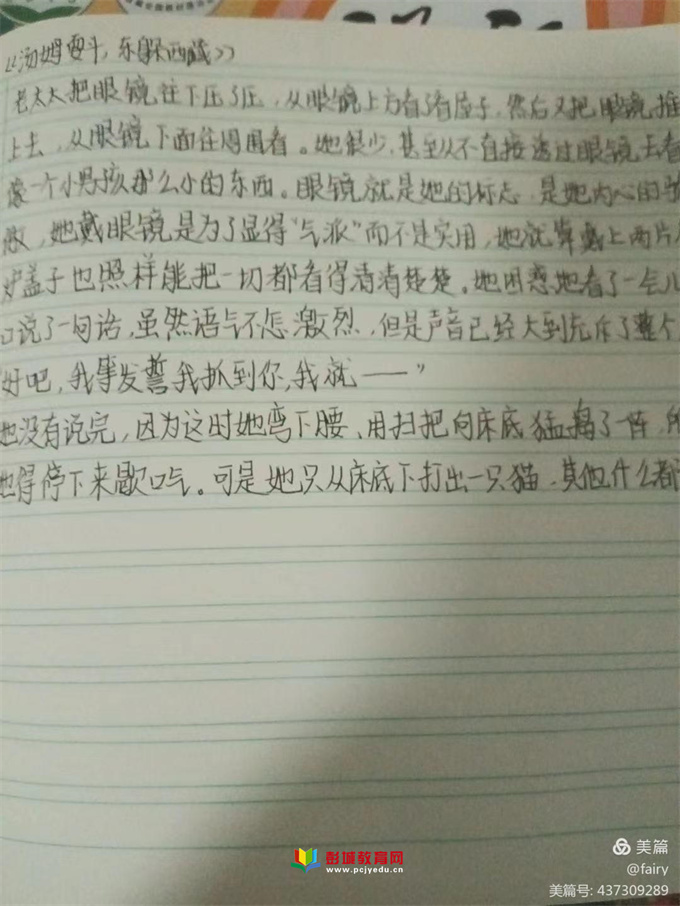 《汤姆耍斗,东躲西藏》
老太太把眼镜往下压了压,从眼镜上方看了看屋子,然后又把眼镜推
上去,从眼镜下面往周围看。她很少,甚至从不直接透过眼镜去看
像一个小男孩那么小的东西。眼镜就是她的标志,是她内心的骄
傲,她戴眼镜是为了显得“气派”而不是实用,她就算戴上两片
炉盖子也照样能把一切都看得清清楚楚。她困惑地看了一会儿
口说了一句话,虽然语气不怎激烈,但是声音已经大到充斥了整个
“好吧,我发誓我抓到你,我就——”
她没有说完,因为这时她弯下腰、用扫把向床底猛捣了一阵,
她得停下来歇口气。可是她只从床底下打出一只猫,其他什么都
彭城教育网
www.pcjyedu.cn
美篇
@fairy
美篇号: 437309289